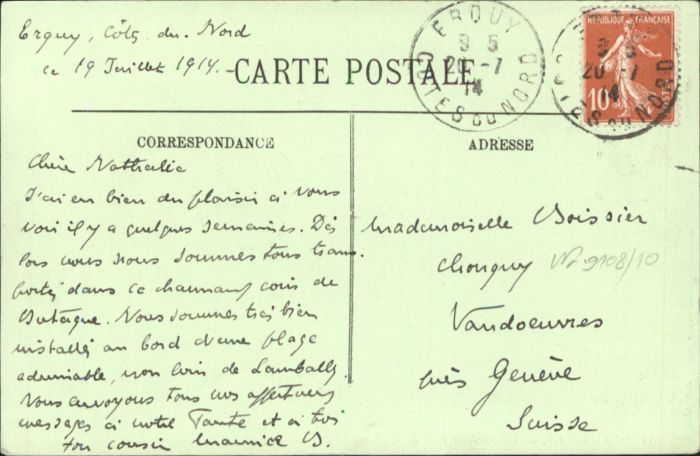 Erquy, Côtes du Nord
ce 19 Juillet 1914.
CARTE POSTALE
ERQUY
9 5
20 -7
14
COTES DU NORD
REPUBLIQUE FRANÇAISE
10
9 5
20 -7
14
NORD
CORRESPONDANCE
ADRESSE
Chère Nathalie
J'ai eu bien du plaisir à vous
voir il y a quelques semaines. Dès
lors nous nous sommes tous trans-
portés dans ce charmant coin de
Bretagne. Nous sommes très bien
installés au bord d'une plage
admirable, non loin de Lamballe.
Nous envoyons tous nos affectueux
messages à votre Tante et à toi
ton cousin Maurice B.
Mademoiselle Boissier
Chougny
9108/10
Vandoeuvres
près Genève
Suisse